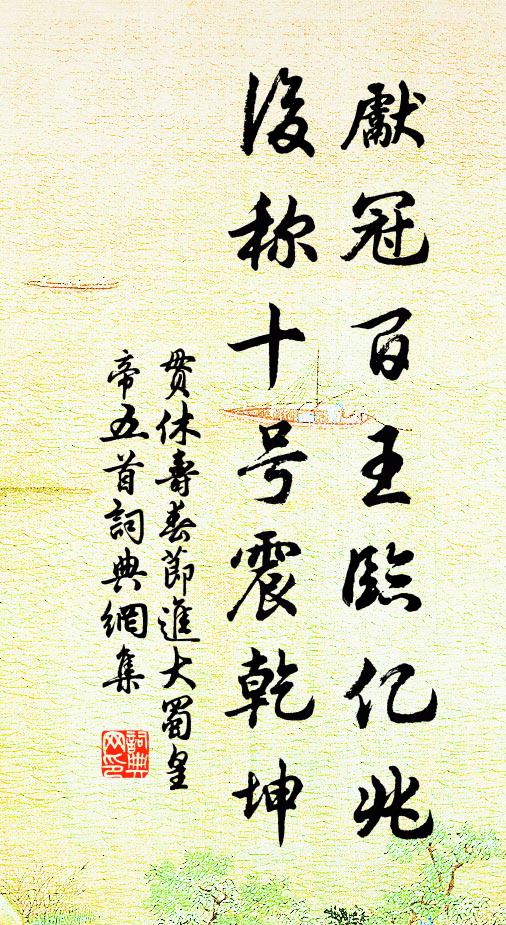 獻冠百王臨亿兆
後称十号震乾坤
贯休壽春節進大蜀皇
帝五首詞典網集
詞典
网印